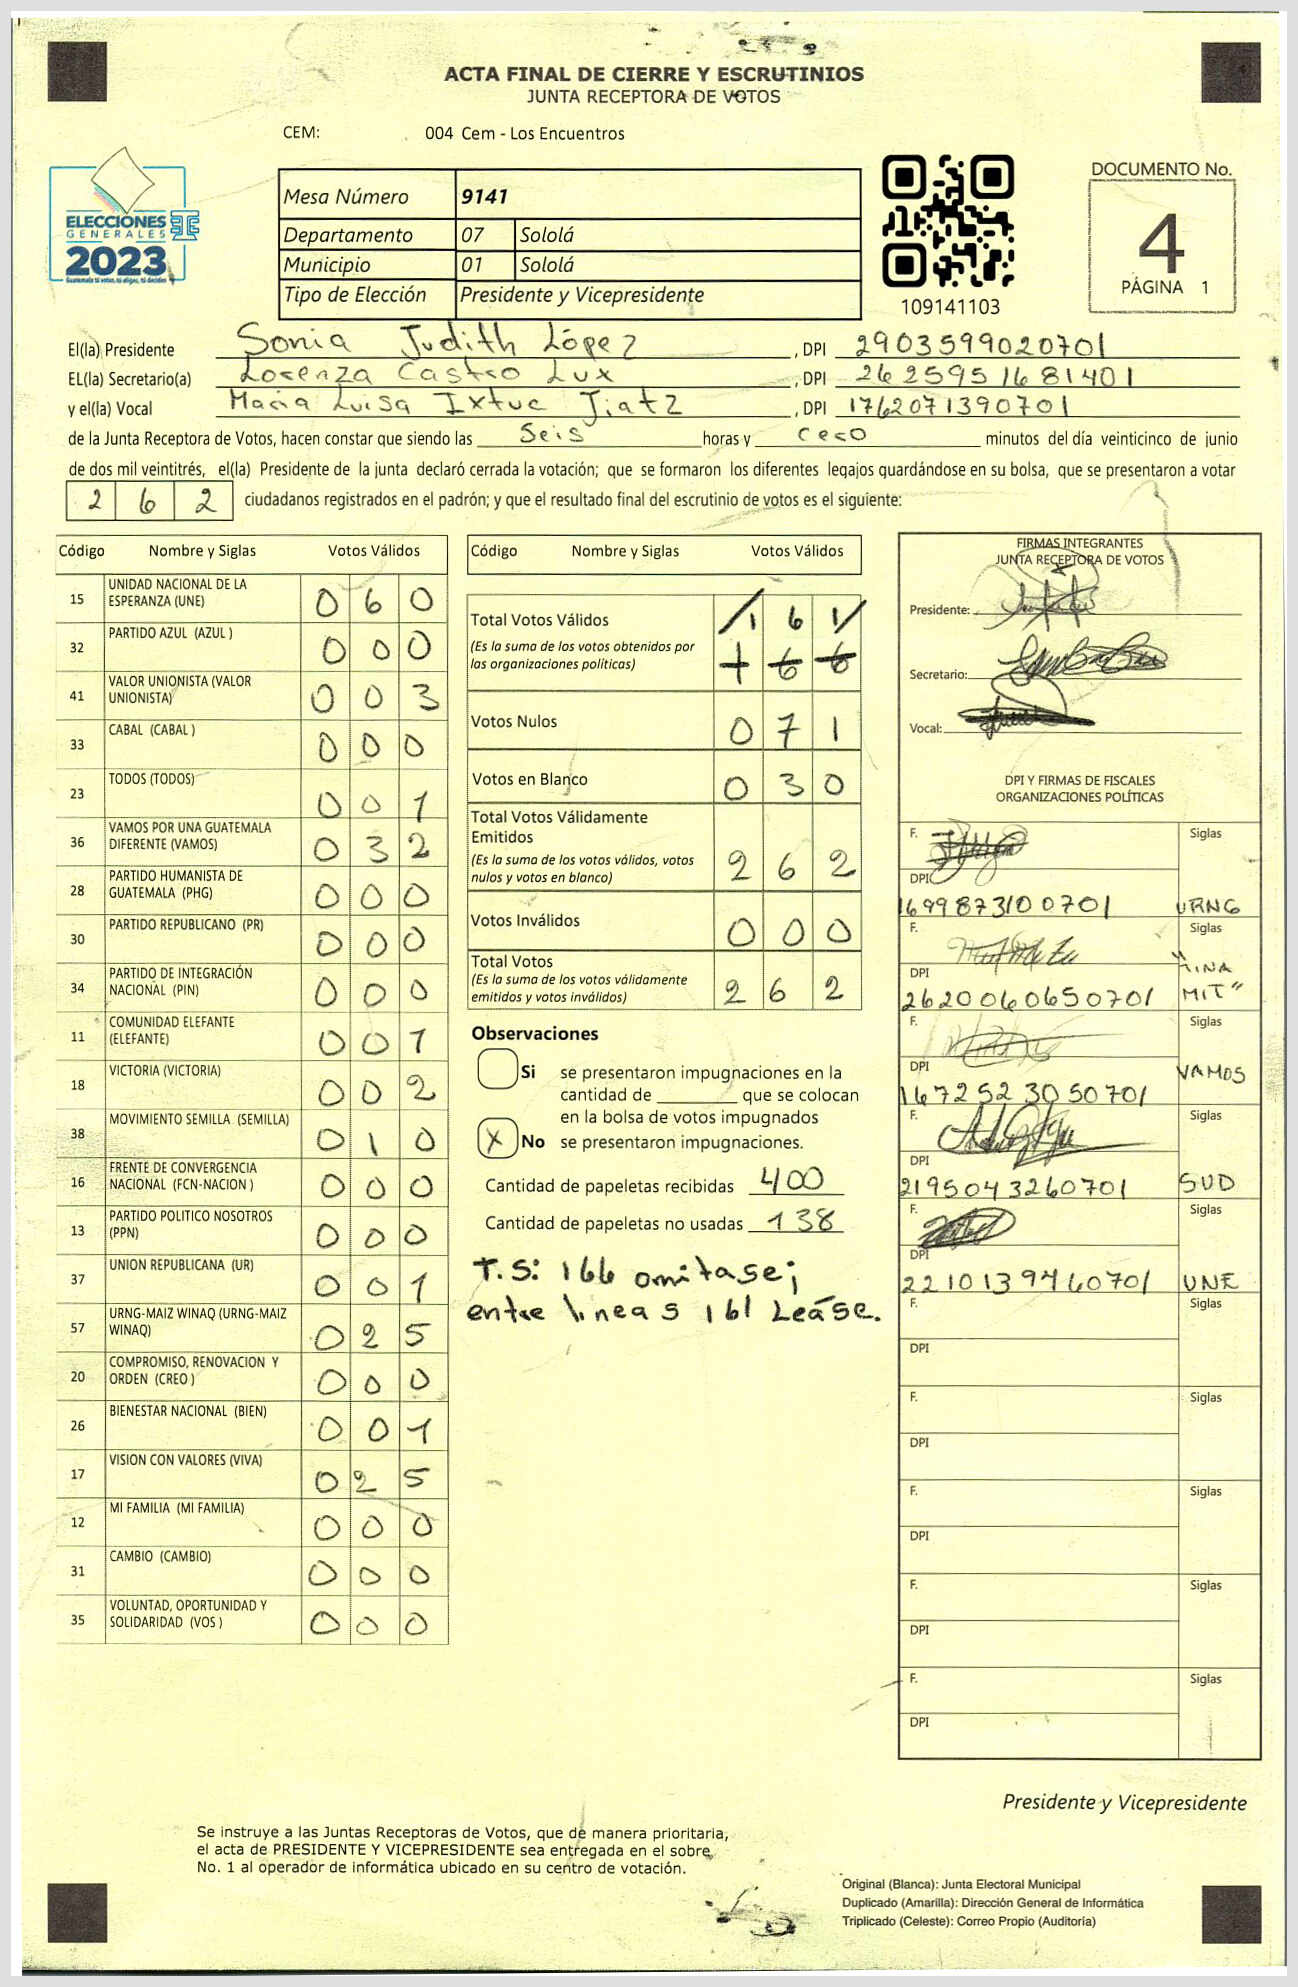 ACTA FINAL DE CIERRE Y ESCRUTINIOS
JUNTA RECEPTORA DE VOTOS
CEM: 004 Cem - Los Encuentros
ELECCIONES
GENERALES
2023
Guatemala tú votas, tú eliges, tú decides
Mesa Número 9141
Departamento 07 Sololá
Municipio 01 Sololá
Tipo de Elección Presidente y Vicepresidente
109141103
DOCUMENTO No.
4
PÁGINA 1
El(la) Presidente Sonia Judith López , DPI 2903599020701
EL(la) Secretario(a) Lorenza Castro Lux , DPI 2625951681401
y el(la) Vocal Maria Luisa Ixtuc Tiatz , DPI 1762071390701
de la Junta Receptora de Votos, hacen constar que siendo las Seis horas y cero minutos del día veinticinco de junio
de dos mil veintitrés, el(la) Presidente de la junta declaró cerrada la votación; que se formaron los diferentes legajos guardándose en su bolsa, que se presentaron a votar
2 6 2 ciudadanos registrados en el padrón; y que el resultado final del escrutinio de votos es el siguiente:
Código Nombre y Siglas Votos Válidos
15 UNIDAD NACIONAL DE LA ESPERANZA (UNE) 0 6 0
32 PARTIDO AZUL (AZUL ) 0 0 0
41 VALOR UNIONISTA (VALOR UNIONISTA) 0 0 3
33 CABAL (CABAL ) 0 0 0
23 TODOS (TODOS) 0 0 1
36 VAMOS POR UNA GUATEMALA DIFERENTE (VAMOS) 0 3 2
28 PARTIDO HUMANISTA DE GUATEMALA (PHG) 0 0 0
30 PARTIDO REPUBLICANO (PR) 0 0 0
34 PARTIDO DE INTEGRACIÓN NACIONAL (PIN) 0 0 0
11 COMUNIDAD ELEFANTE (ELEFANTE) 0 0 1
18 VICTORIA (VICTORIA) 0 0 2
38 MOVIMIENTO SEMILLA (SEMILLA) 0 1 0
16 FRENTE DE CONVERGENCIA NACIONAL (FCN-NACION ) 0 0 0
13 PARTIDO POLITICO NOSOTROS (PPN) 0 0 0
37 UNION REPUBLICANA (UR) 0 0 1
57 URNG-MAIZ WINAQ (URNG-MAIZ WINAQ) 0 2 5
20 COMPROMISO, RENOVACION Y ORDEN (CREO ) 0 0 0
26 BIENESTAR NACIONAL (BIEN) 0 0 1
17 VISION CON VALORES (VIVA) 0 2 5
12 MI FAMILIA (MI FAMILIA) 0 0 0
31 CAMBIO (CAMBIO) 0 0 0
35 VOLUNTAD, OPORTUNIDAD Y SOLIDARIDAD (VOS ) 0 0 0
Código Nombre y Siglas Votos Válidos
Total Votos Válidos /1 6 1/
(Es la suma de los votos obtenidos por las organizaciones políticas) 1 6 6
Votos Nulos 0 7 1
Votos en Blanco 0 3 0
Total Votos Válidamente Emitidos
(Es la suma de los votos válidos, votos nulos y votos en blanco) 2 6 2
Votos Inválidos 0 0 0
Total Votos
(Es la suma de los votos válidamente emitidos y votos inválidos) 2 6 2
Observaciones
Si se presentaron impugnaciones en la
cantidad de ________ que se colocan
en la bolsa de votos impugnados
X No se presentaron impugnaciones.
Cantidad de papeletas recibidas 400
Cantidad de papeletas no usadas 138
T.S: 166 omitase;
entre lineas 161 Leáse.
FIRMAS INTEGRANTES
JUNTA RECEPTORA DE VOTOS
Presidente:
Secretario:
Vocal:
DPI Y FIRMAS DE FISCALES
ORGANIZACIONES POLÍTICAS
F. Siglas
DPI
1699873100701 URNG
F. Siglas
DPI
2620060650701 MIT"
F. Siglas
DPI
1672523050701 VAMOS
F. Siglas
DPI
2195043260701 SUD
F. Siglas
DPI
2210139460701 UNE
F. Siglas
DPI
F. Siglas
DPI
F. Siglas
DPI
F. Siglas
DPI
F. Siglas
DPI
Presidente y Vicepresidente
Se instruye a las Juntas Receptoras de Votos, que de manera prioritaria,
el acta de PRESIDENTE Y VICEPRESIDENTE sea entregada en el sobre
No. 1 al operador de informática ubicado en su centro de votación.
Original (Blanca): Junta Electoral Municipal
Duplicado (Amarilla): Dirección General de Informática
Triplicado (Celeste): Correo Propio (Auditoría)